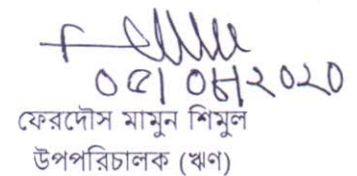 ০৫|০৮|২০২০
ফেরদৌস মামুন শিমুল
উপপরিচালক (ঋণ)